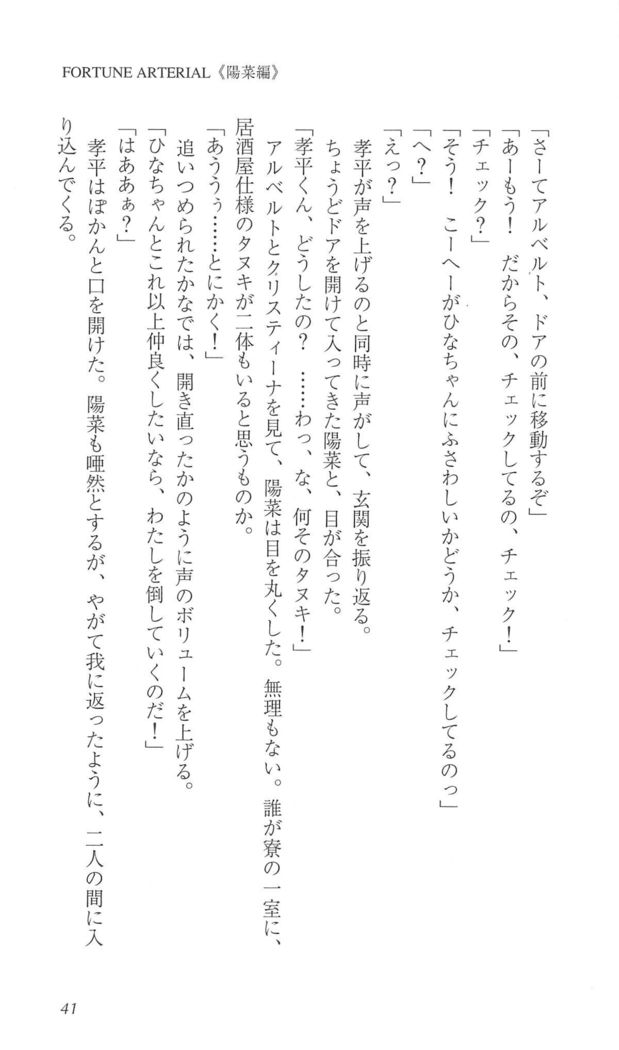 FORTUNE ARTERIAL《陽菜編》
「さーてアルベルト、ドアの前に移動するぞ」
「あーもう!　だからその、チェックしてるの、チェック!」
「チェック?」
「そう!　こーへーがひなちゃんにふさわしいかどうか、チェックしてるのっ」
「へ?」
「えっ?」
　孝平が声を上げるのと同時に声がして、玄関を振り返る。
　ちょうどドアを開けて入ってきた陽菜と、目が合った。
「孝平くん、どうしたの?　……わっ、な、何そのタヌキ!」
　アルベルトとクリスティーナを見て、陽菜は目を丸くした。無理もない。誰が寮の一室に、
居酒屋仕様のタヌキが二体もいると思うものか。
「あううぅ……とにかく!」
　追いつめられたかなでは、開き直ったかのように声のボリュームを上げる。
「ひなちゃんとこれ以上仲良くしたいなら、わたしを倒していくのだ!」
「はあぁぁ?」
　孝平はぽかんと口を開けた。陽菜も唖然とするが、やがて我に返ったように、二人の間に入
り込んでくる。
41